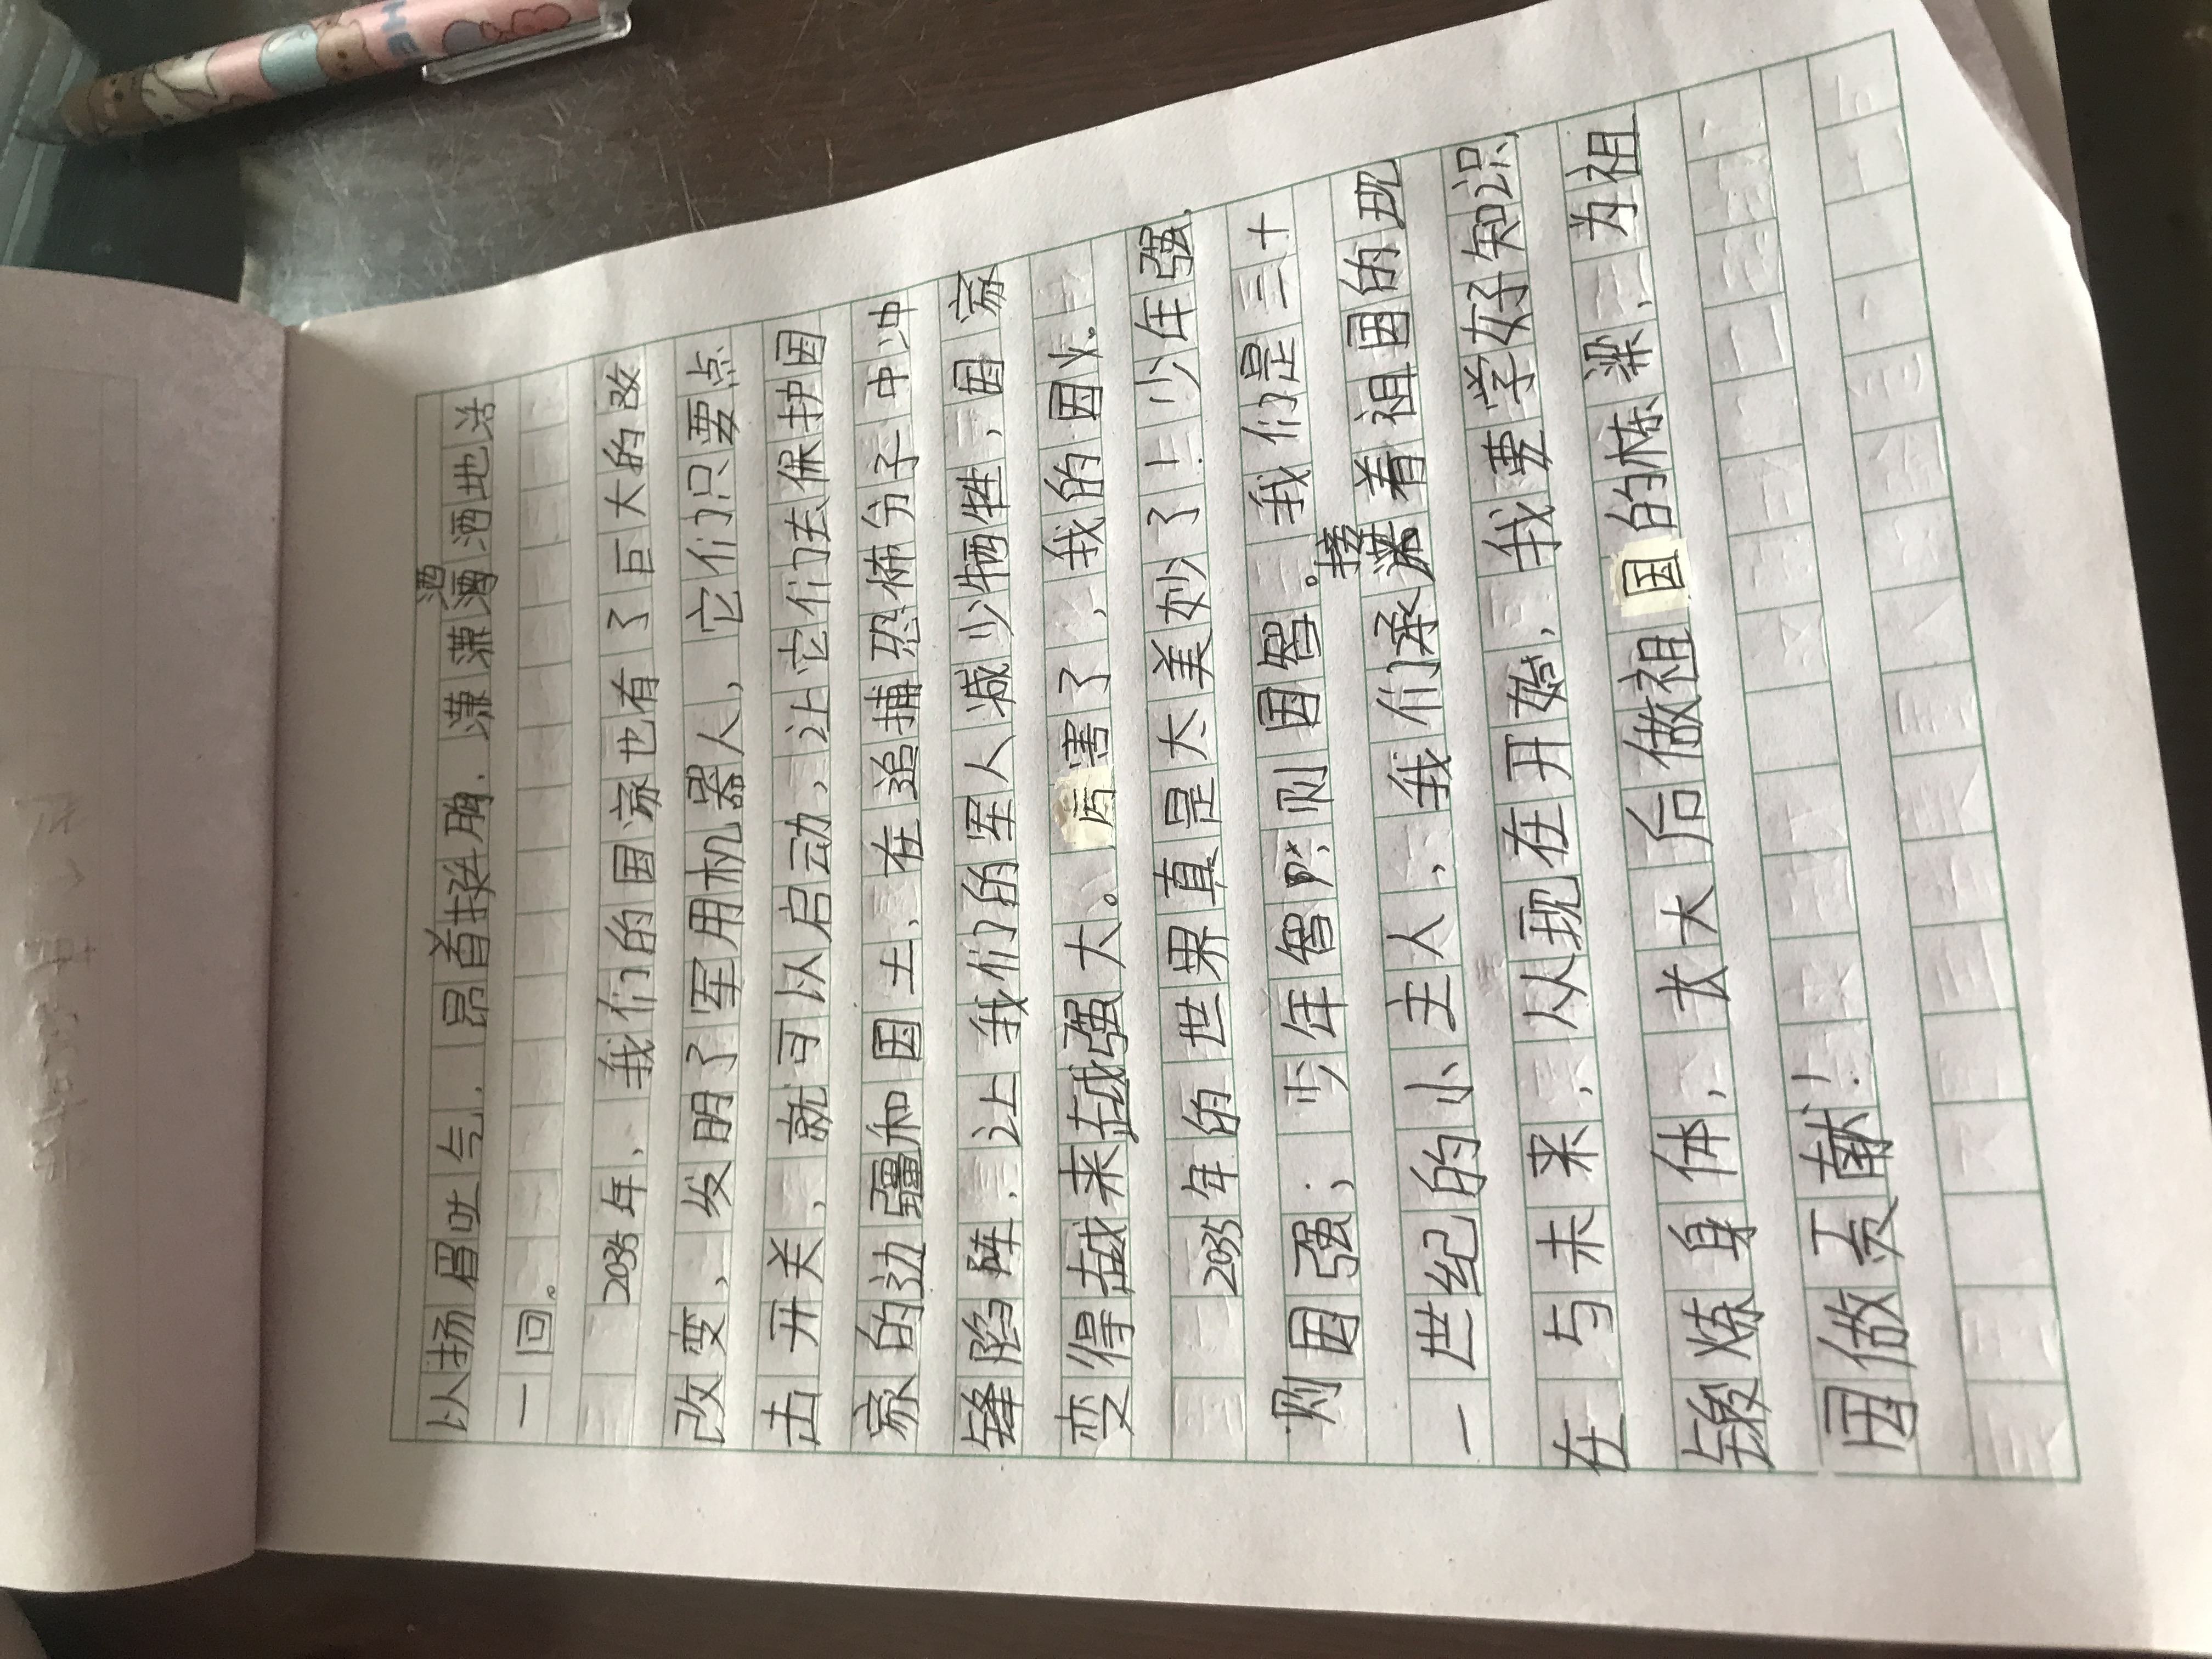 以扬眉吐气，昂首挺胸，潇潇洒洒地活
一回。
2035年，我们的国家也有了巨大的改
改变，发明了军用机器人，它们只要点
击开关，就可以启动，让它们去保护国
家的边疆和国土，在追捕恐怖分子中冲
锋陷阵，让我们的军人减少牺牲，国家
变得越来越强大。厉害了，我的国火。
2035年的世界真是太美妙了！少年强，
则国强；少年智，则国智。我们是二十
一世纪的小主人，我们承接着祖国的现
在与未来，从现在开始，我要学好知识
锻炼身体，长大后做祖国的栋梁，为祖
国做贡献！
HE